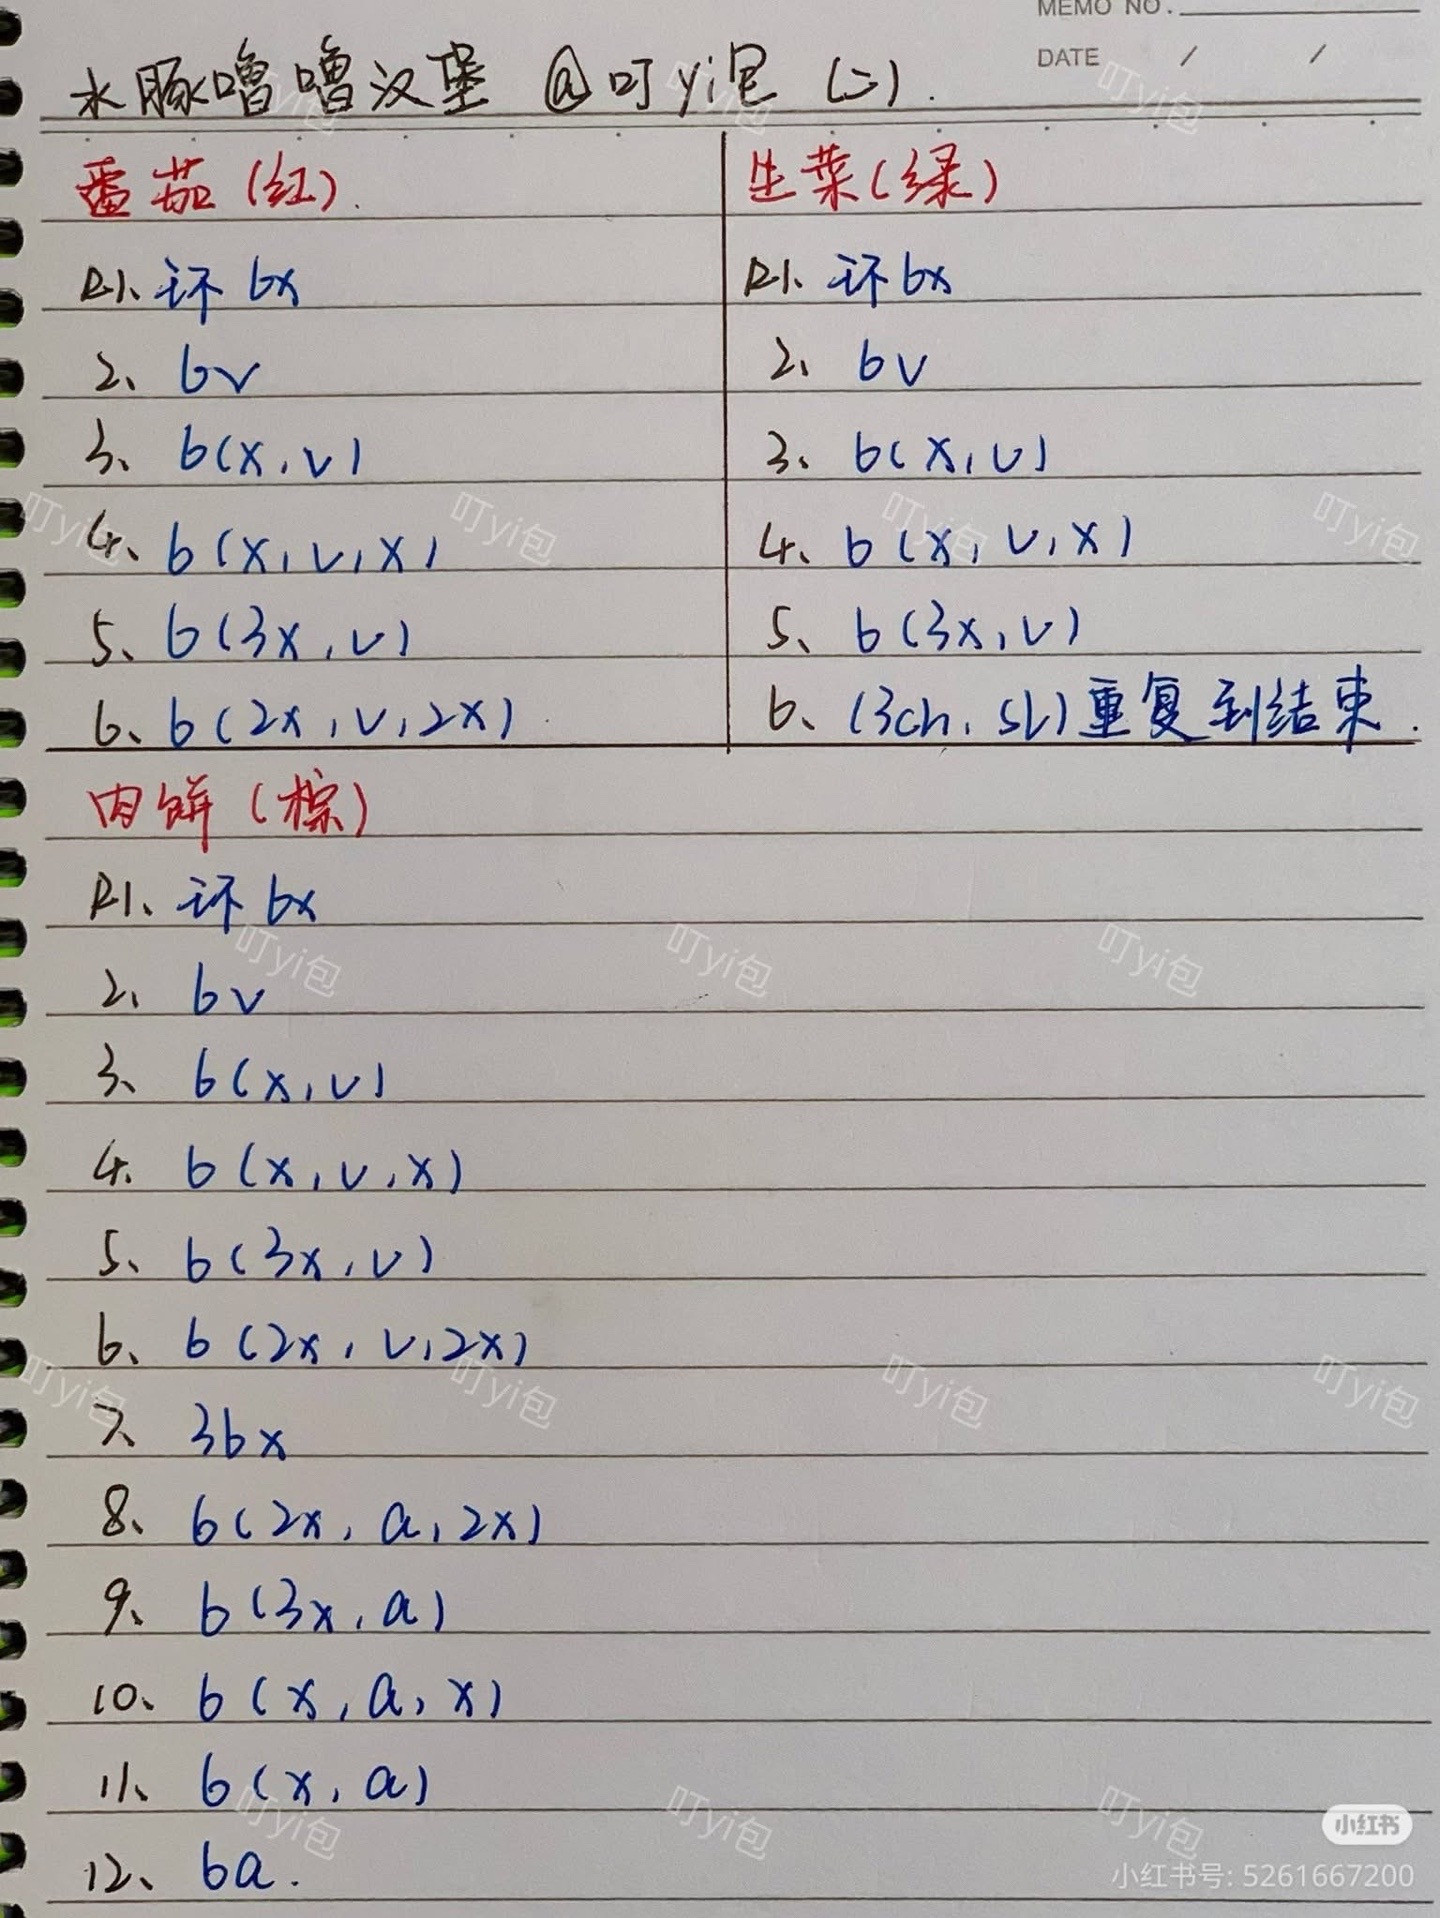 MEMO NO.
DATE / /
水豚噜噜汉堡 @叮yi包 (二).
番茄(红).
R1. 环6x
2、6v
3、6(x,v)
4、6(x,v,x)
5、6(3x,v)
6、6(2x,v,2x).
生菜(绿)
R1. 环6x
2、6v
3、6(x,v)
4、6(x,v,x)
5、6(3x,v)
6、(3ch,sl)重复到结束.
肉饼(棕)
R1、环6x
2、6v
3、6(x,v)
4、6(x,v,x)
5、6(3x,v)
6、6(2x,v,2x)
7、36x
8、6(2x,a,2x)
9、6(3x,a)
10、6(x,a,x)
11、6(x,a)
12、6a.
叮yi包
小红书
小红书号: 5261667200